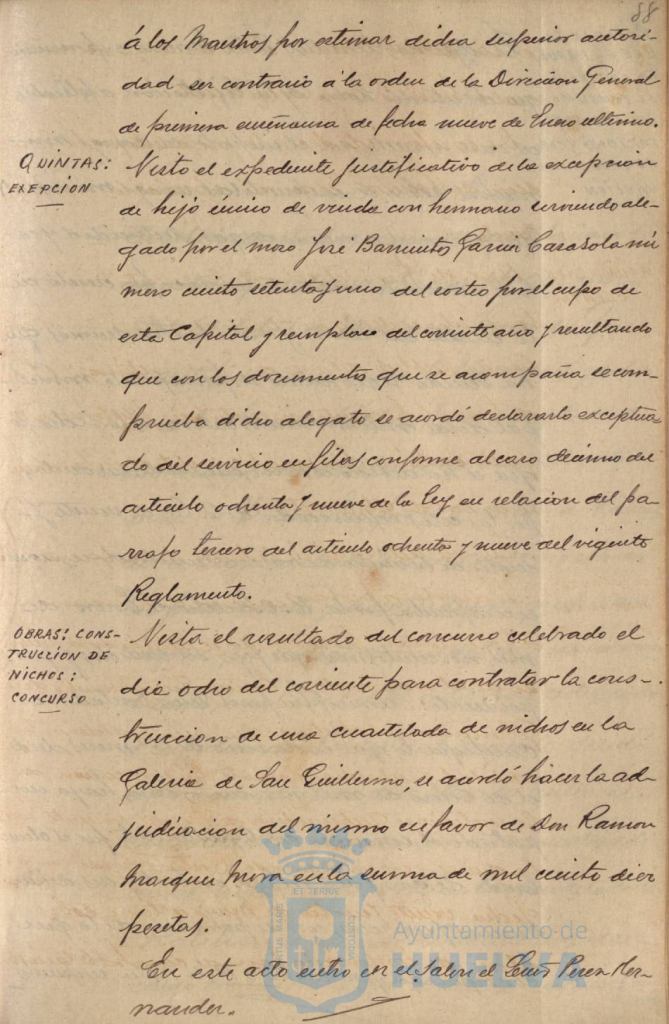 88
á los Maestros por estimar dicha superior autori-
dad ser contrario á la orden de la Direccion General
de primera enseñanza de fecha nueve de Enero ultimo.
QUINTAS:
EXEPCIÓN
Visto el expediente justificativo de la excepcion
de hijo único de viuda con hermano sirviendo ale-
gado por el mozo José Barrientos Garcia Casasola nú
mero ciento setenta y uno del sorteo por el cupo de
esta Capital y remplazo del corriente año y resultando
que con los documentos que se acompaña se com-
prueba dicho alegato se acordó declararlo exceptua
do del servicio en filas conforme al caso décimo del
articulo ochenta y nueve de la Ley en relacion del pa-
rrafo tercero del articulo ochenta y nueve del vigente
Reglamento.
OBRAS: CONS-
TRUCCION DE
NICHOS:
CONCURSO
Visto el resultado del concurso celebrado el
dia ocho del corriente para contratar la cons-
truccion de una cuartelada de nichos en la
Galeria de San Guillermo, se acordó hacer la ad-
judicacion del mismo en favor de Don Ramon
Marquez Mora en la suma de mil ciento diez
pesetas.
En este acto entró en el Salon el Señor Perez Her-
nandez.
PORTUS MARIS ET TERRE CUSTODIA
Ayuntamiento de
HUELVA